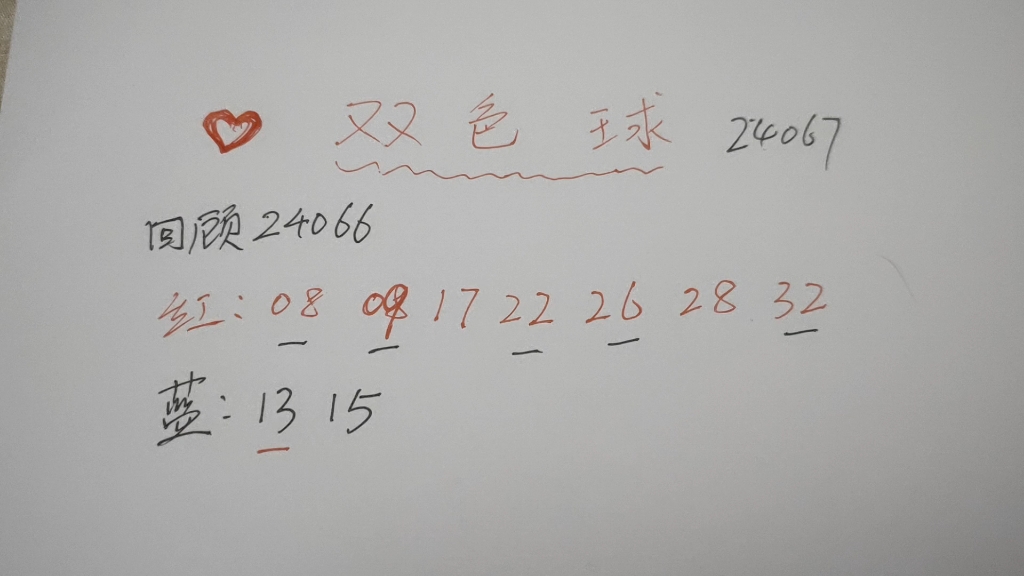 双色球 24067
回顾24066
红:08 09 17 22 26 28 32
蓝:13 15